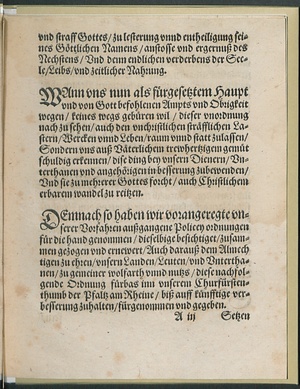 vnd straff Gottes / zu lesterung vnnd entheiligung sei-
nes Göttlichen Namens / anstosse vnd ergernuß des
Nechstens / Vnd dem endlichen verderbens der See-
le / Leibs / vnd zeitlicher Nahrung.
Wann vns nun als fürgesetztem Haupt
vnd von Gott befohlenen Ampts vnd Obrigkeit
wegen / keines wegs gebüren wil / dieser vnordnung
nach zu sehen / auch den vnchristlichen sträfflichen La-
stern / Wercken vnnd Leben / raum vnnd statt zulassen /
Sondern vns auß Vätterlichem trewhertzigem gemüt
schuldig erkennen / dise ding bey vnsern Dienern / Vn-
terthanen vnd angehörigen in besserung zubewenden /
Vnd sie zu mehrerer Gottes forcht / auch Christlichem
erbarem wandel zu reitzen.
Demnach so haben wir vorangeregte vn-
serer Vorfahren außgangene Policey ordnungen
für die hand genommen / dieselbige besichtiget / zusam-
men gezogen vnd ernewert. Auch darauß dem Almech-
tigen zu ehren / vnsern Landen / Leuten / vnd Vntertha-
nen / zu gemeiner wolfarth vnnd nutz / diese nachfol-
gende Ordnung fürbas inn vnserem Churfürsten-
thumb der Pfaltz am Rheine / biß auff künfftige ver-
besserung zuhalten / fürgenommen vnd gegeben.
A iij Setzen